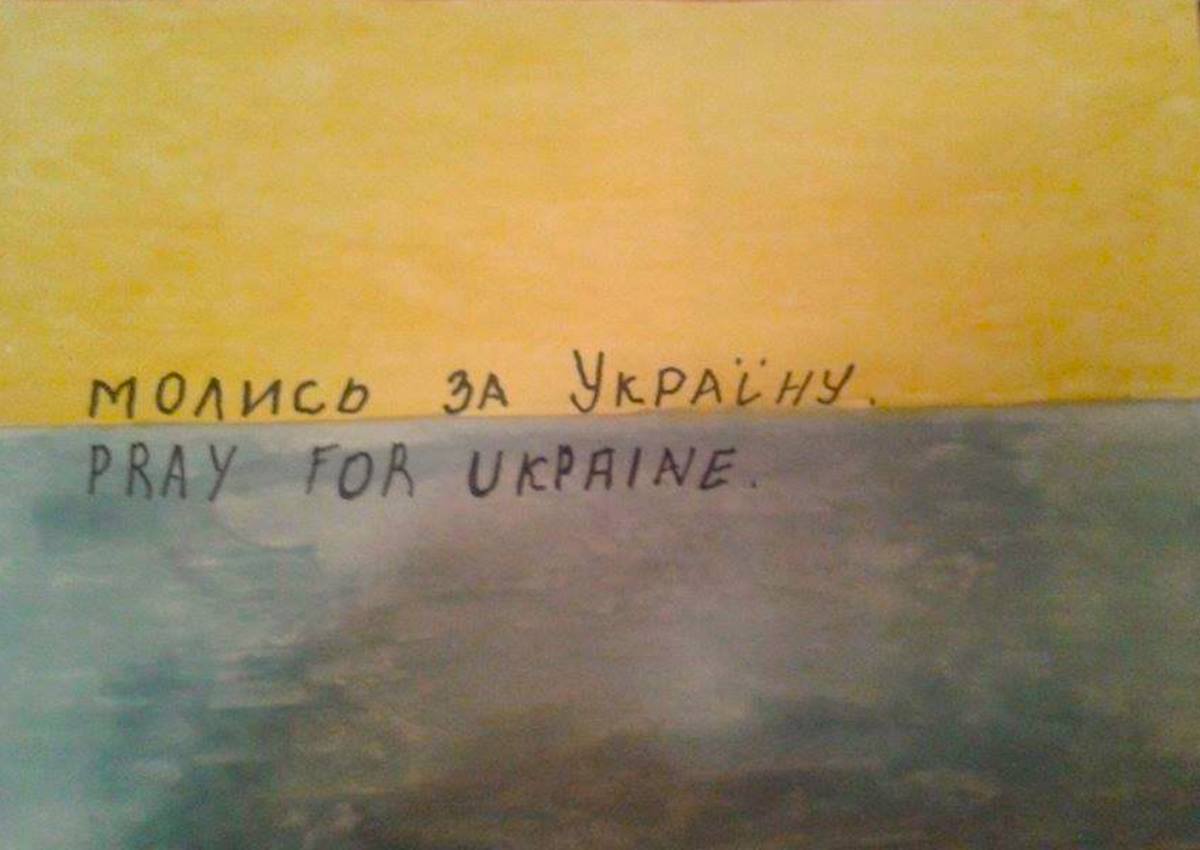 молись за Україну.
PRAY FOR UKRAINE.